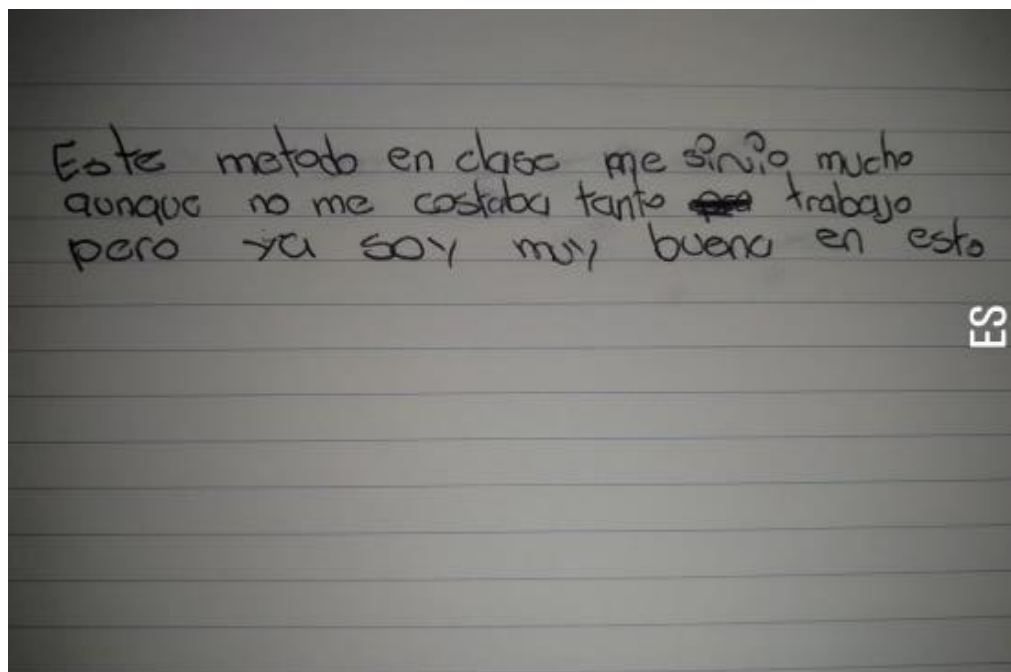 Este metodo en clase me sirvio mucho
aunque no me costaba tanto trabajo
pero ya soy muy buena en esto
ES